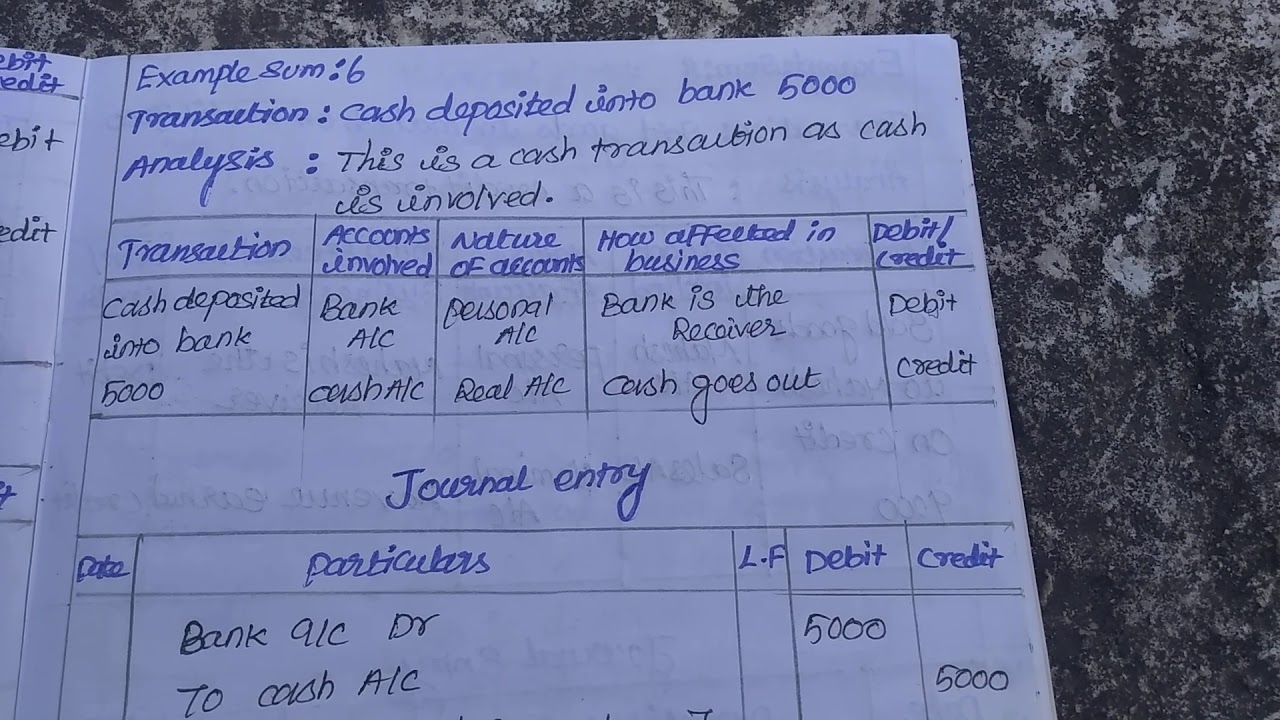 ebit
redit
ebit
edit
Example Sum: 6
Transaction : Cash deposited into bank 5000
Analysis : This is a cash transaction as cash
is involved.
Transaction | Accounts involved | Nature of accounts | How affected in business | Debit/ Credit
Cash deposited into bank 5000 | Bank A/C | Personal A/C | Bank is the Receiver | Debit
cash A/C | Real A/C | Cash goes out | Credit
Journal entry
Date | Particulars | L.F | Debit | Credit
Bank a/c Dr | 5000
To cash A/C | 5000